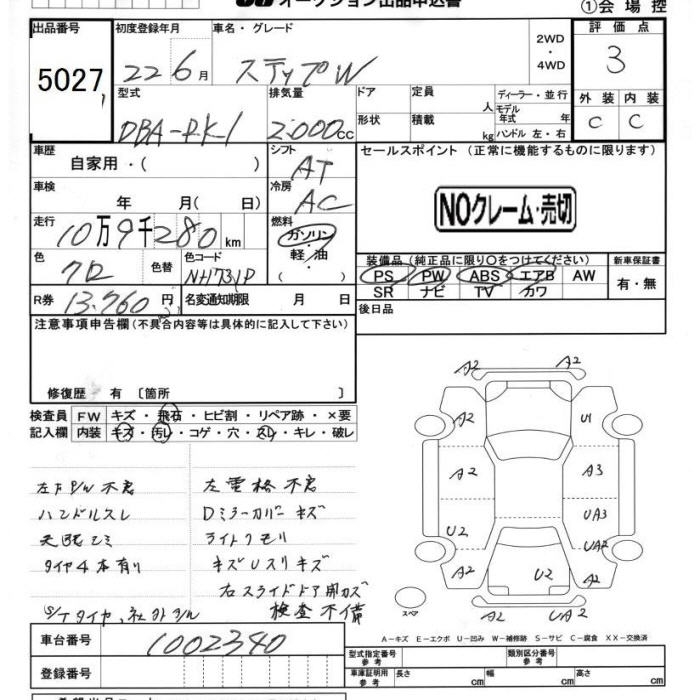 オークション出品申込書
①会場控
出品番号 初度登録年月 車名・グレード 2WD・4WD 評価点
5027 22年6月 ステップW 3
型式 排気量 ドア 定員 人 ディーラー・並行 外装 内装
DBA-RK1 2000cc 形状 積載 kg モデル年式 年 ハンドル 左・右 C C
車歴 自家用・( ) シフト AT セールスポイント (正常に機能するものに限ります)
車検 年 月( 日) 冷房 AC
NOクレーム・売切
走行 10万9千280km 燃料 ガソリン・軽油・( )
色 クロ 色替 色コード NH731P
装備品(純正品に限り○をつけてください) 新車保証書
PS PW ABS エアB AW 有・無
SR ナビ TV カワ
R券 13,760円 名変通知期限 月 日
後日品
注意事項申告欄(不具合内容等は具体的に記入して下さい)
修復歴 有 [箇所 ]
検査員 FW キズ・飛石・ヒビ割・リペア跡・×要
記入欄 内装 キズ・汚レ・コゲ・穴・スレ・キレ・破レ
左下P/W不良 左電格不良
ハンドルスレ Dミラーカバーキズ
天張シミ ライトクモリ
タイヤ4本有り キズUスリキズ
右スライドドア開カズ
S/Tタイヤ、社外 検査不備
A2 A2
A2 U1
A2 A3
U2 UA3
UA2
A2 U2 A2
スペア
A2 UA2
A-キズ E-エクボ U-凹み W-補修跡 S-サビ C-腐食 XX-交換済
車台番号 1002340
登録番号
型式指定番号 参考 類別区分番号 参考
車庫証明用 参考 長さ cm 幅 cm 高さ cm